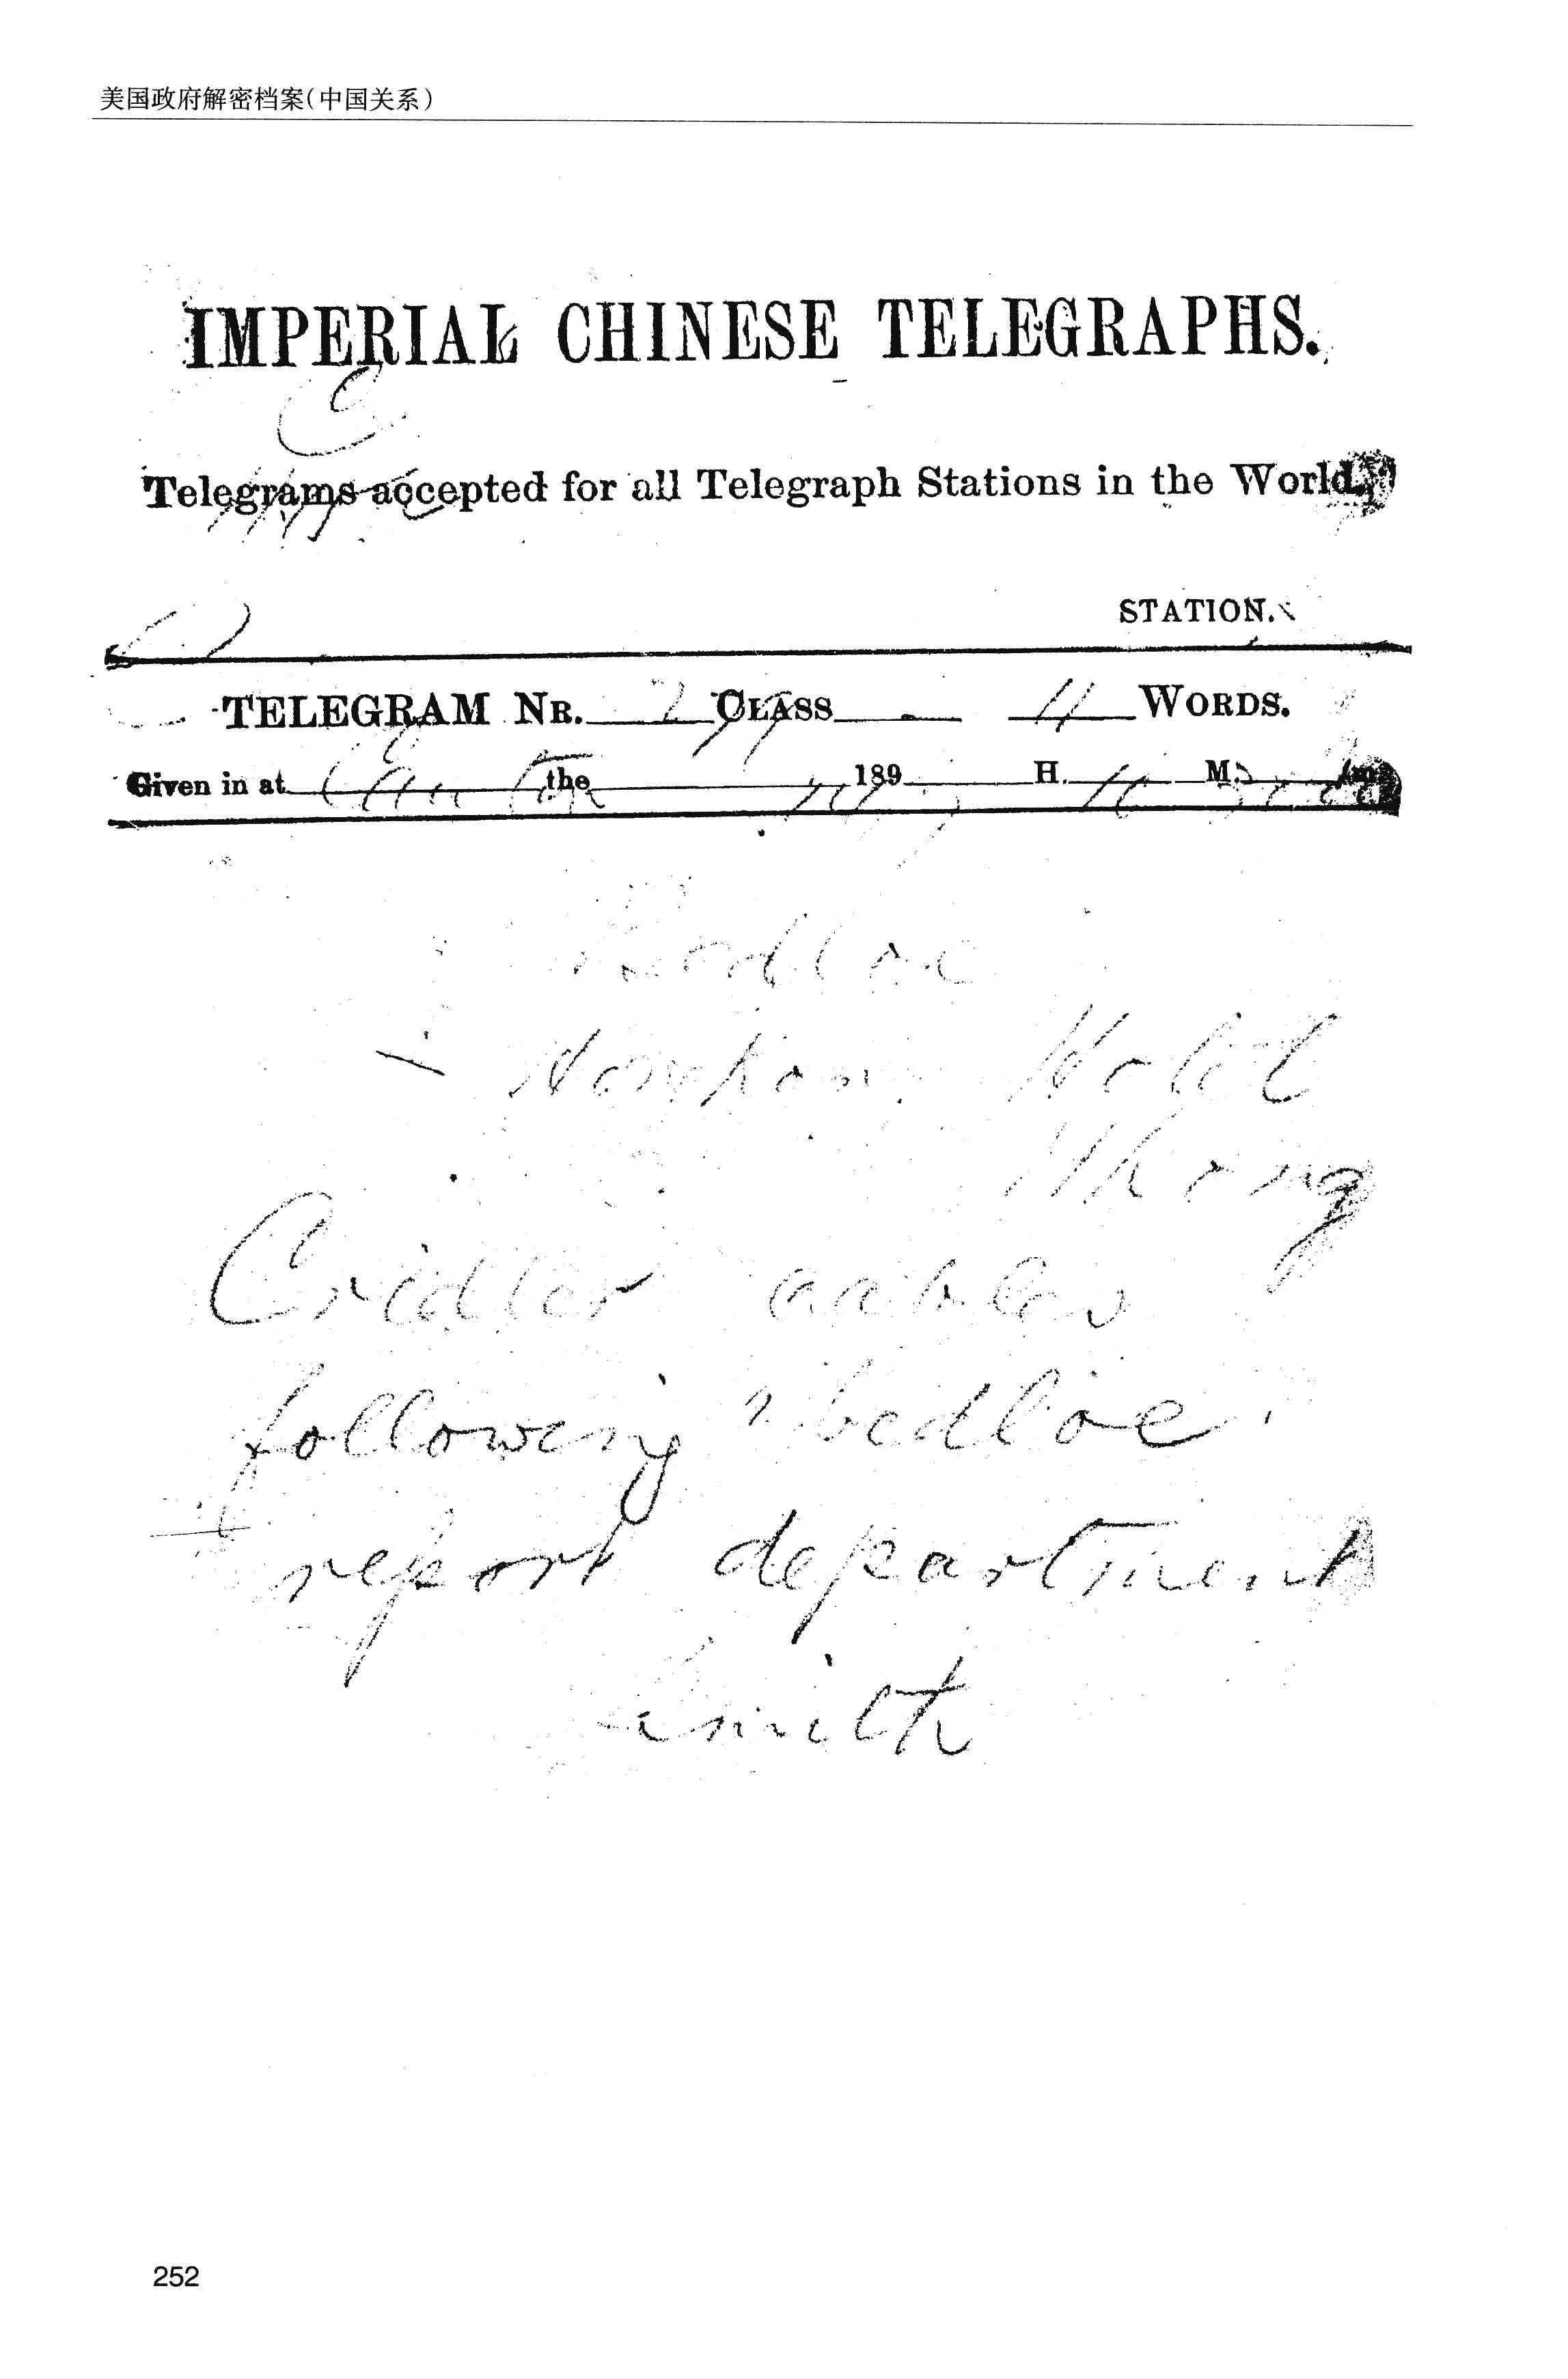 美国政府解密档案(中国关系)
IMPERIAL CHINESE TELEGRAPHS.
Telegrams accepted for all Telegraph Stations in the World.
STATION.
TELEGRAM NR. CLASS 11 WORDS.
Given in at Canton the 189 H. M.
Bedloe
Hongkong Hotel
Hkong
Cridler cables
following bedloe
report department
Smith
252